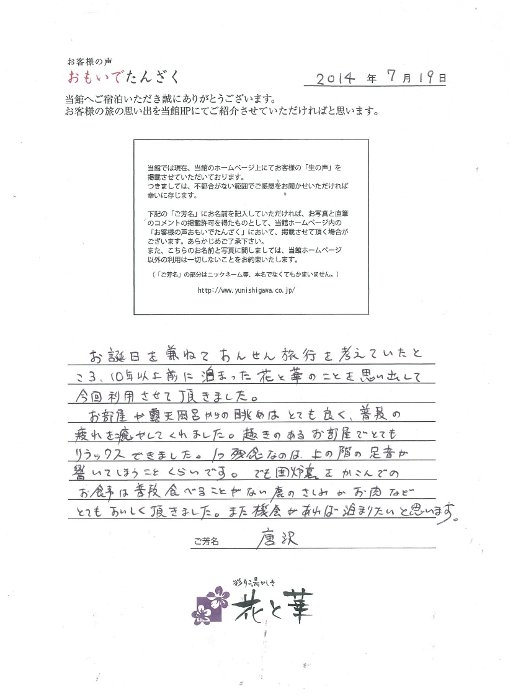 お客様の声
おもいでたんざく
2014 年 7月19日
当館へご宿泊いただき誠にありがとうございます。
お客様の旅の思い出を当館HPにてご紹介させていただければと思います。
当館では現在、当館のホームページ上にてお客様の「生の声」を
掲載させていただいております。
つきましては、不都合がない範囲でご感想をお聞かせいただければ
幸いに存じます。
下記の「ご芳名」にお名前を記入していただければ、お写真と直筆
のコメントの掲載許可を得たものとして、当館ホームページ内の
「お客様の声おもいでたんざく」において、掲載させて頂く場合が
ございます。あらかじめご了承下さい。
また、こちらのお名前と写真に関しましては、当館ホームページ
以外の利用は一切しないことをお約束いたします。
(「ご芳名」の部分はニックネーム等、本名でなくてもかまいません。)
http://www.yunishigawa.co.jp/
お誕日を兼ねておんせん旅行を考えていたと
ころ、10年以上前に泊まった花と華のことを思い出して
今回利用させて頂きました。
お部屋や露天風呂からの眺めはとても良く、普段の
疲れを癒やしてくれました。趣きのあるお部屋でとても
リラックスできました。1つ残念なのは、上の階の足音が
響いてしまうことくらいです。でも囲炉裏をかこんでの
お食事は普段食べることがない鹿のさしみやお肉など
とてもおいしく頂きました。また機会があれば泊まりたいと思います。
ご芳名 唐沢
花と華